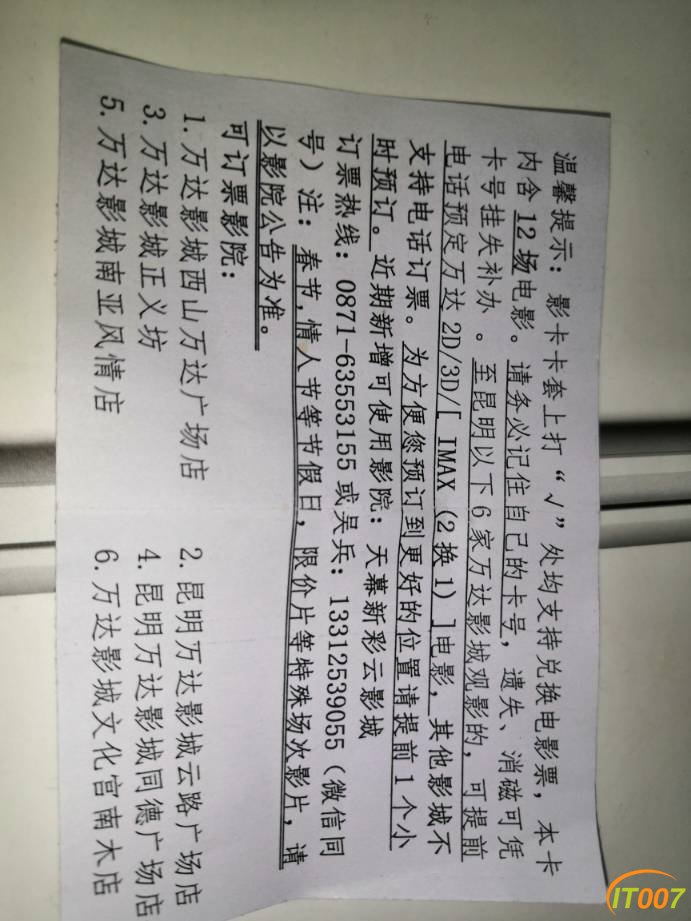 温馨提示：影卡卡套上打“√”处均支持兑换电影票，本卡
内含 12 场电影。请务必记住自己的卡号，遗失、消磁可凭
卡号挂失补办 。至昆明以下 6 家万达影城观影的，可提前
电话预定万达 2D/3D/[ IMAX（2 换 1）]电影，其他影城不
支持电话订票。为方便您预订到更好的位置请提前 1 个小
时预订。近期新增可使用影院：天幕新彩云影城
订票热线：0871-63553155 或吴兵：13312539055（微信同
号）注：春节,情人节等节假日，限价片等特殊场次影片，请
以影院公告为准。
可订票影院：
1.万达影城西山万达广场店 2.昆明万达影城云路广场店
3.万达影城正义坊 4.昆明万达影城同德广场店
5.万达影城南亚风情店 6.万达影城文化宫南木店
IT007